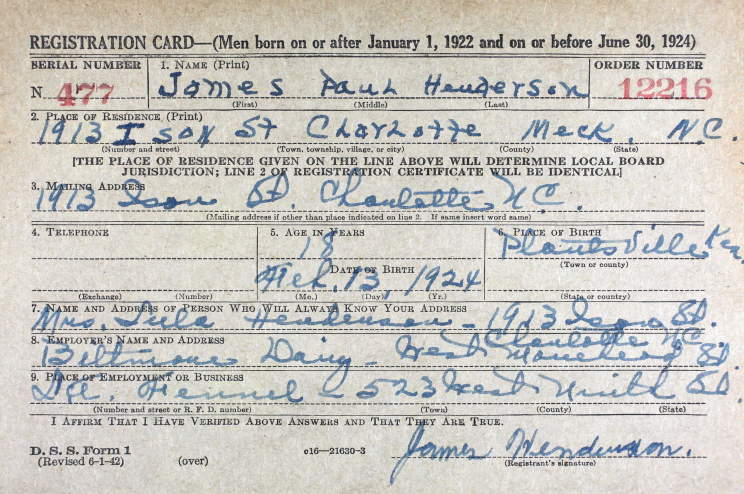 REGISTRATION CARD—(Men born on or after January 1, 1922 and on or before June 30, 1924)
SERIAL NUMBER 1. NAME (Print) ORDER NUMBER
N 477 James Paul Henderson 12216
(First) (Middle) (Last)
2. PLACE OF RESIDENCE (Print)
1913 Ison St Charlotte Meck. N.C.
(Number and street) (Town, township, village, or city) (County) (State)
[THE PLACE OF RESIDENCE GIVEN ON THE LINE ABOVE WILL DETERMINE LOCAL BOARD
JURISDICTION; LINE 2 OF REGISTRATION CERTIFICATE WILL BE IDENTICAL]
3. MAILING ADDRESS
1913 Ison St. Charlotte N.C.
(Mailing address if other than place indicated on line 2. If same insert word same)
4. TELEPHONE 5. AGE IN YEARS 6. PLACE OF BIRTH
18 Plantsville
(Town or county)
DATE OF BIRTH
Feb. 13, 1924
(Exchange) (Number) (Mo.) (Day) (Yr.) (State or country)
7. NAME AND ADDRESS OF PERSON WHO WILL ALWAYS KNOW YOUR ADDRESS
Mrs. Lula Henderson - 1913 Ison St.
Charlotte N.C.
8. EMPLOYER'S NAME AND ADDRESS
Biltmore Dairy - West Morehead St
9. PLACE OF EMPLOYMENT OR BUSINESS
- 523 West Ninth St.
(Number and street or R. F. D. number) (Town) (County) (State)
I AFFIRM THAT I HAVE VERIFIED ABOVE ANSWERS AND THAT THEY ARE TRUE.
D. S. S. Form 1
(Revised 6-1-42) (over) c16—21630-3 James Henderson.
(Registrant's signature)